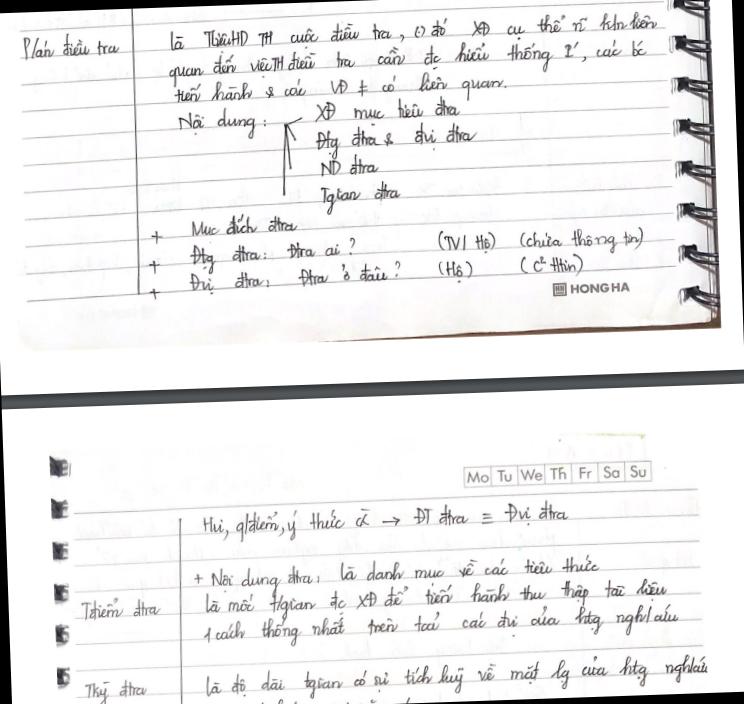 P/án điều tra
là TliệuHD TH cuộc điều tra, () đó XĐ cụ thể n~ k/n liên
quan đến việcTH điều tra cần đc hiểu thống I', các bc
tiến hành & các VĐ ≠ có liên quan.
Nội dung: XĐ mục tiêu đtra
Đtg đtra & đvị đtra
ND đtra
Tgian đtra
+ Mục đích đtra
+ Đtg đtra: Đtra ai? (TV/ Hộ) (chứa thông tin)
+ Đvị đtra: Đtra ở đâu? (Hộ) (c² ttin)
HONG HA
Mo Tu We Th Fr Sa Su
q/điểm, ý thức → ĐT đtra ≡ Đvị đtra
+ Nội dung đtra: là danh mục về các tiêu thức
Tđiểm đtra
là mốc t/gian đc XĐ để tiến hành thu thập tài liệu
1 cách thống nhất trên toàn các đvị của htg ngh/cứu
Tkỳ đtra
là độ dài tgian có sự tích luỹ về mặt lg của htg nghcứu